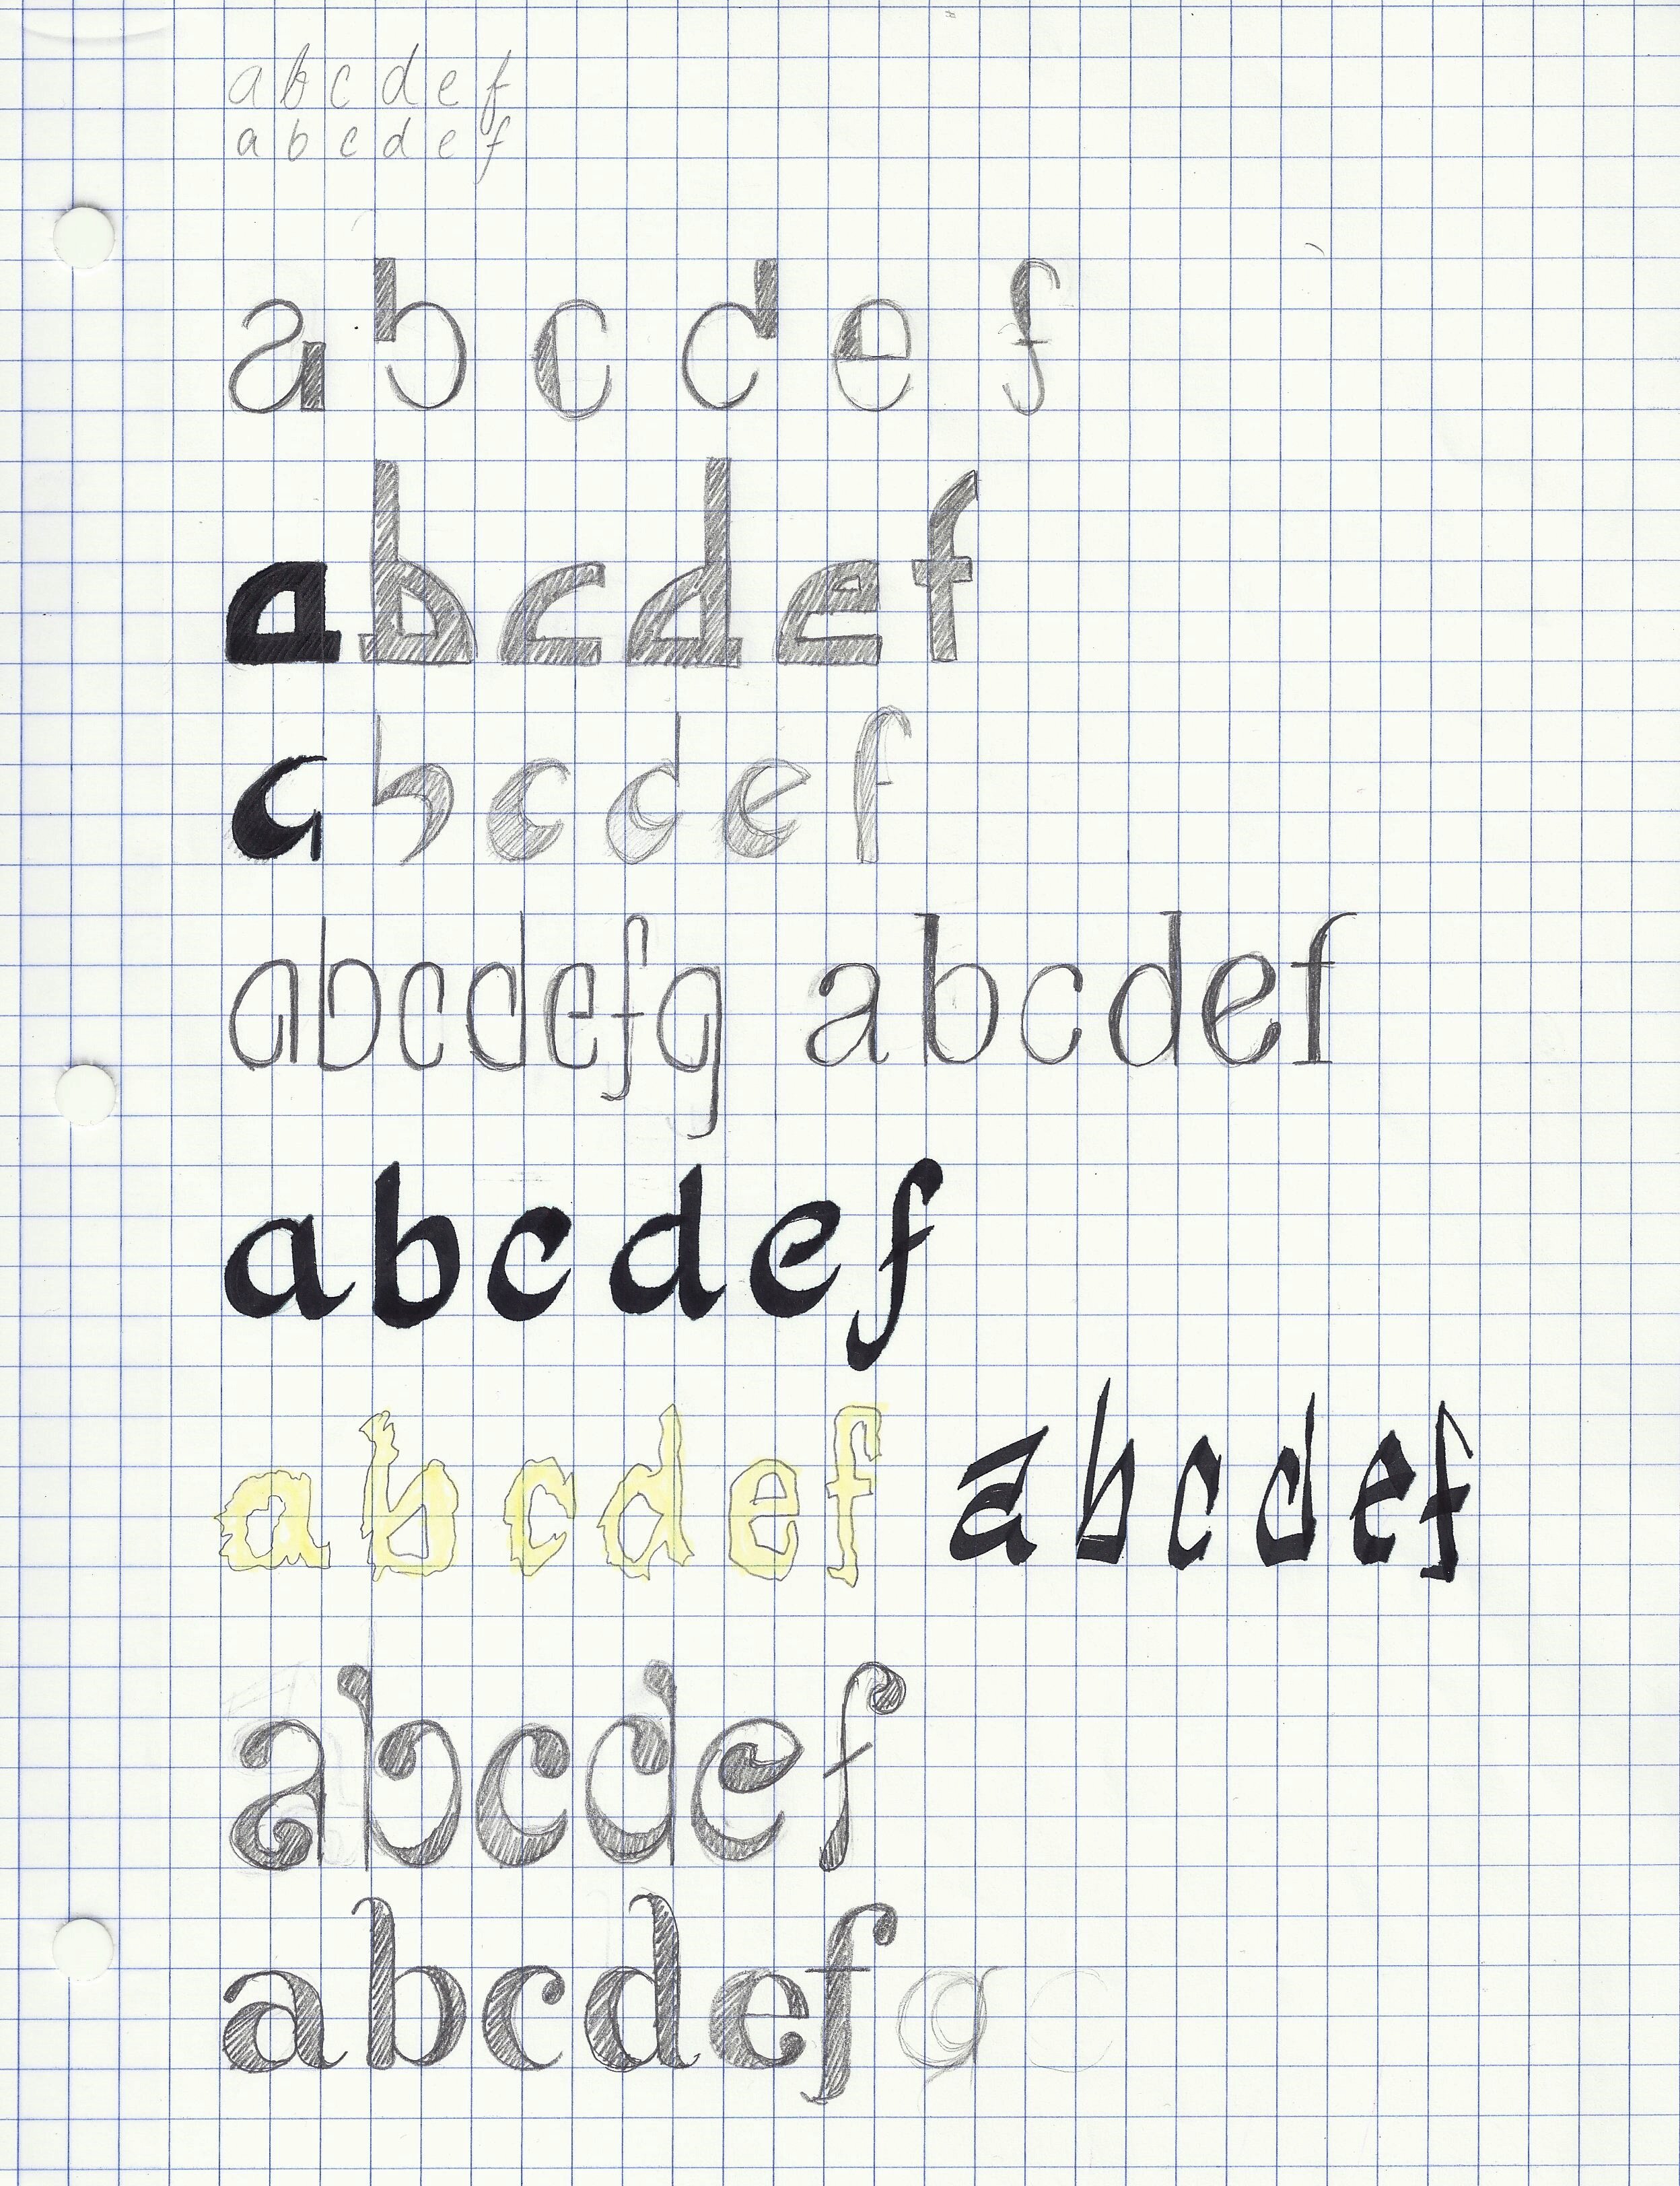 a b c d e f
a b c d e f
a b c d e f
abcdef
abcdef
abcdefg abcdef
abcdef
abcdef abcdef
abcdef
abcdef a c